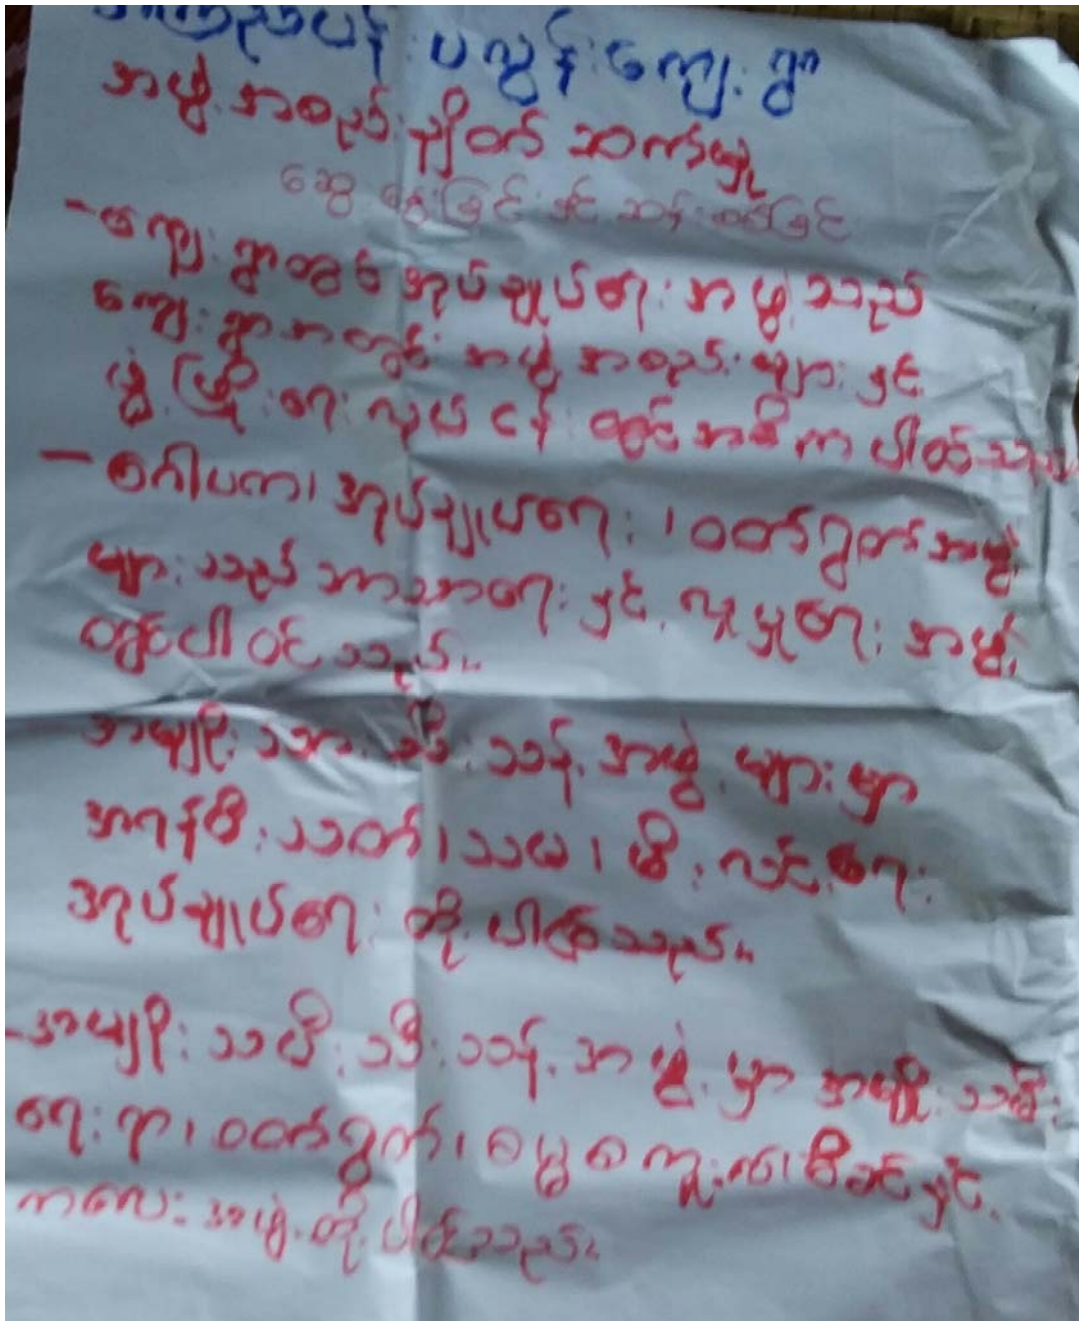 ပလွန်းကျေးရွာ
အဖွဲ့အစည်းချိတ်ဆက်မှု
ဆွေးနွေးခြင်းနှင့်ဆန်းစစ်ခြင်း
- ကျေးရွာတွင် အုပ်ချုပ်ရေးအဖွဲ့သည်
ကျေးရွာအတွင်းအဖွဲ့အစည်းများနှင့်
ဖွံ့ဖြိုးရေးလုပ်ငန်းတွင်အဓိကပါဝင်သည်
- ဂေါပက၊ အုပ်ချုပ်ရေး၊ ဝတ်ရွတ်အဖွဲ့
များသည်ဘာသာရေးနှင့်လူမှုရေးအဖွဲ့
တွင်ပါဝင်သည်။
အမျိုးသားသီးသန့်အဖွဲ့များမှာ
အရန်မီးသတ်၊ သမ၊ မီးလင်းရေး
အုပ်ချုပ်ရေးတို့ပါဝင်သည်။
- အမျိုးသမီးသီးသန့်အဖွဲ့မှာ အမျိုးသမီး
ရေးရာ၊ ဝတ်ရွတ်၊ ဓမ္မစကူးလ်၊ မိခင်နှင့်
ကလေးအဖွဲ့တို့ပါဝင်သည်။